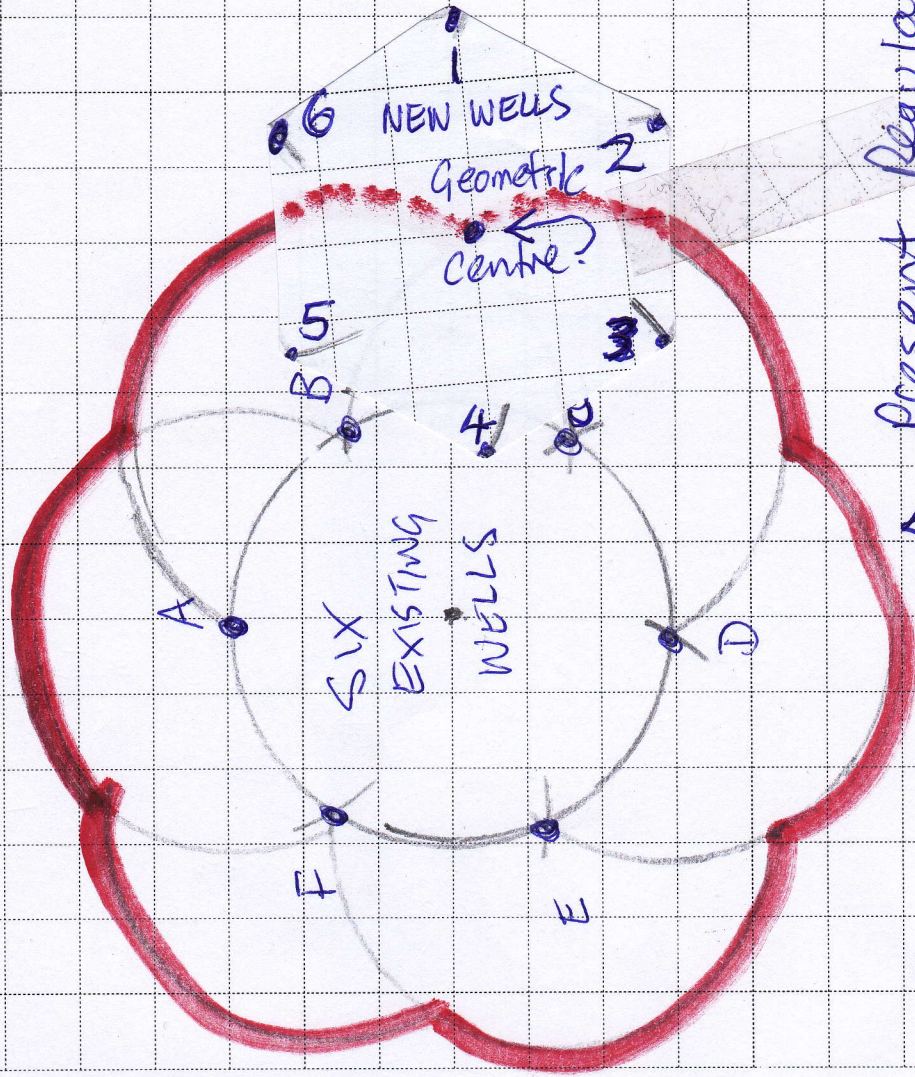 1
6
NEW WELLS
2
Geometric
Centre?
5
3
B
4
C
A
SIX
EXISTING
WELLS
D
F
E
Present Regula